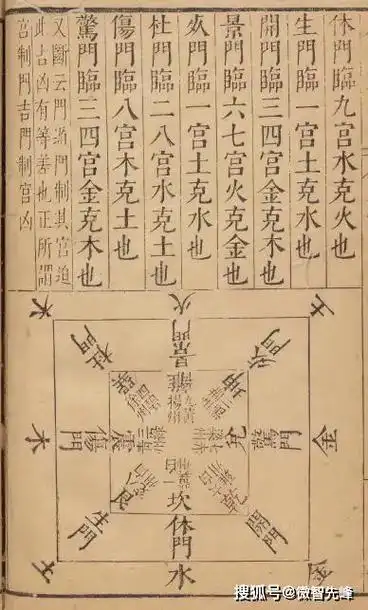 休門臨九宮水克火也
生門臨一宮土克水也
開門臨三四宮金克木也
景門臨六七宮火克金也
死門臨一宮土克水也
杜門臨二八宮水克土也
傷門臨八宮木克土也
驚門臨三四宮金克木也
又斷云門迫門制其宮迫
此占凶有等善也正所謂
宮制門吉門制宮凶
木 火 土
杜門 景門 死門
巽 離 坤
四宮徐州 揚州
木 傷門 震 兌 驚門 金
艮 坎 乾
生門 休門 開門
土 水 金
搜狐号@微智先峰